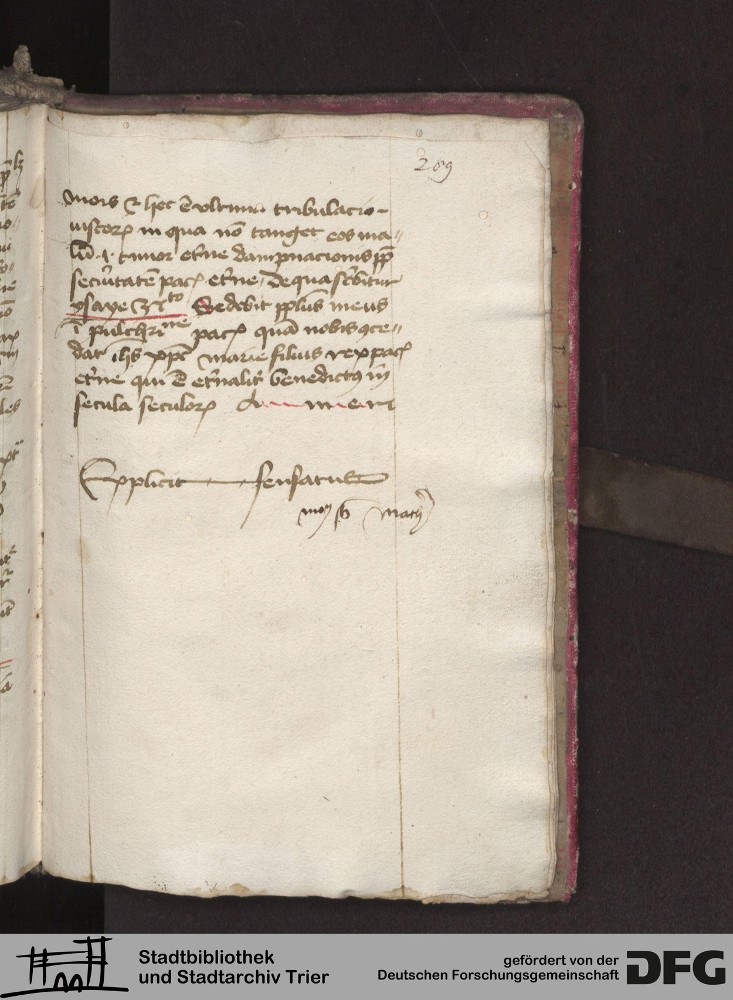 289
mors et hec est ultima tribulacio
iustorum in qua non tanget eos ma-
lum .i. timor eterne dampnacionis propter
securitatem pacis eterne de qua scribitur
ysaye 32to Sedebit populus meus
in pulchritudine pacis quam nobis conce-
dat ihesus christus marie filius rex pacis
eterne qui est eternaliter benedictus in
secula seculorum Amen
Explicit sensatus
Stadtbibliothek
und Stadtarchiv Trier
gefördert von der
Deutschen Forschungsgemeinschaft
DFG